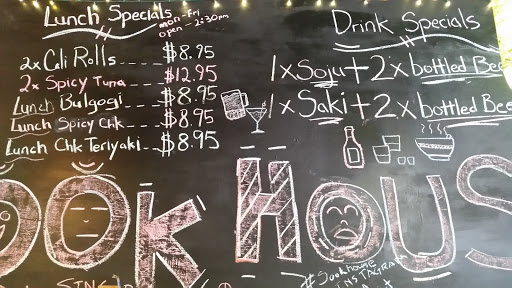 Lunch Specials
mon-Fri
open - 2:30pm
2x Cali Rolls----$8.95
2x Spicy Tuna----$12.95
Lunch Bulgogi---$8.95
Lunch Spicy Chk---$8.95
Lunch Chk Teriyaki--$8.95
Drink Specials
1x Soju + 2x bottled Bee
1x Saki + 2x bottled Bee
OOK HOUS
#Sookhouse
INSTAGRAM